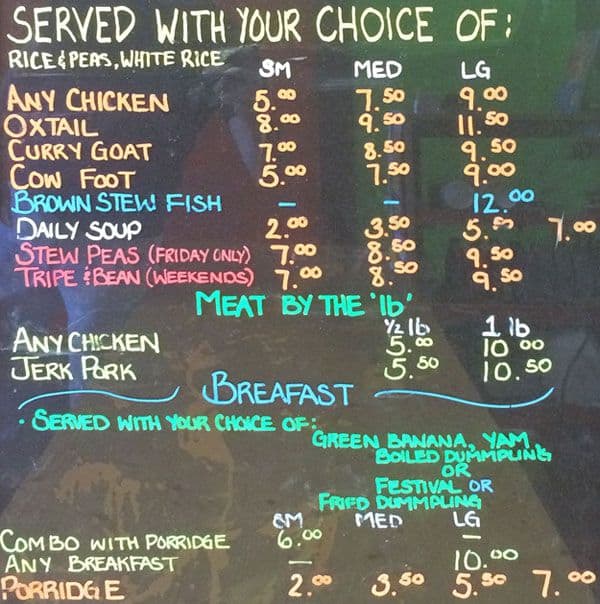 SERVED WITH YOUR CHOICE OF:
RICE & PEAS, WHITE RICE
SM MED LG
ANY CHICKEN 5.00 7.50 9.00
OXTAIL 8.00 9.50 11.50
CURRY GOAT 7.00 8.50 9.50
COW FOOT 5.00 7.50 9.00
BROWN STEW FISH – – 12.00
DAILY SOUP 2.00 3.50 5. 7.00
STEW PEAS (FRIDAY ONLY) 7.00 8.50 9.50
TRIPE & BEAN (WEEKENDS) 7.00 8.50 9.50
MEAT BY THE 'lb'
1/2 lb 1 lb
ANY CHICKEN 5.00 10 00
JERK PORK 5.50 10.50
BREAFAST
• SERVED WITH YOUR CHOICE OF:
GREEN BANANA, YAM,
BOILED DUMMPLING
OR
FESTIVAL OR
FRIED DUMMPLING
SM MED LG
COMBO WITH PORRIDGE 6.00 –
ANY BREAKFAST – 10.00
PORRIDGE 2.00 3.50 5.50 7.00